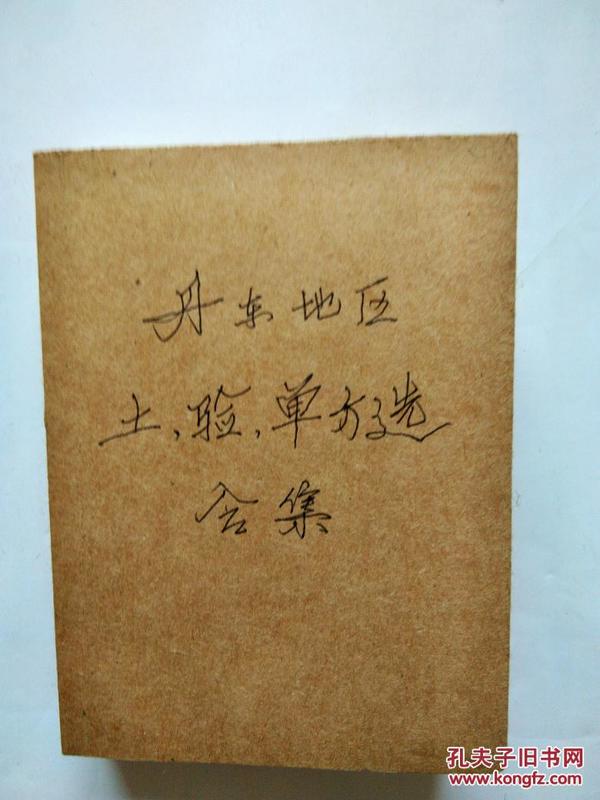 丹东地区
土、验、单方选
合集
孔夫子旧书网
www.kongfz.com